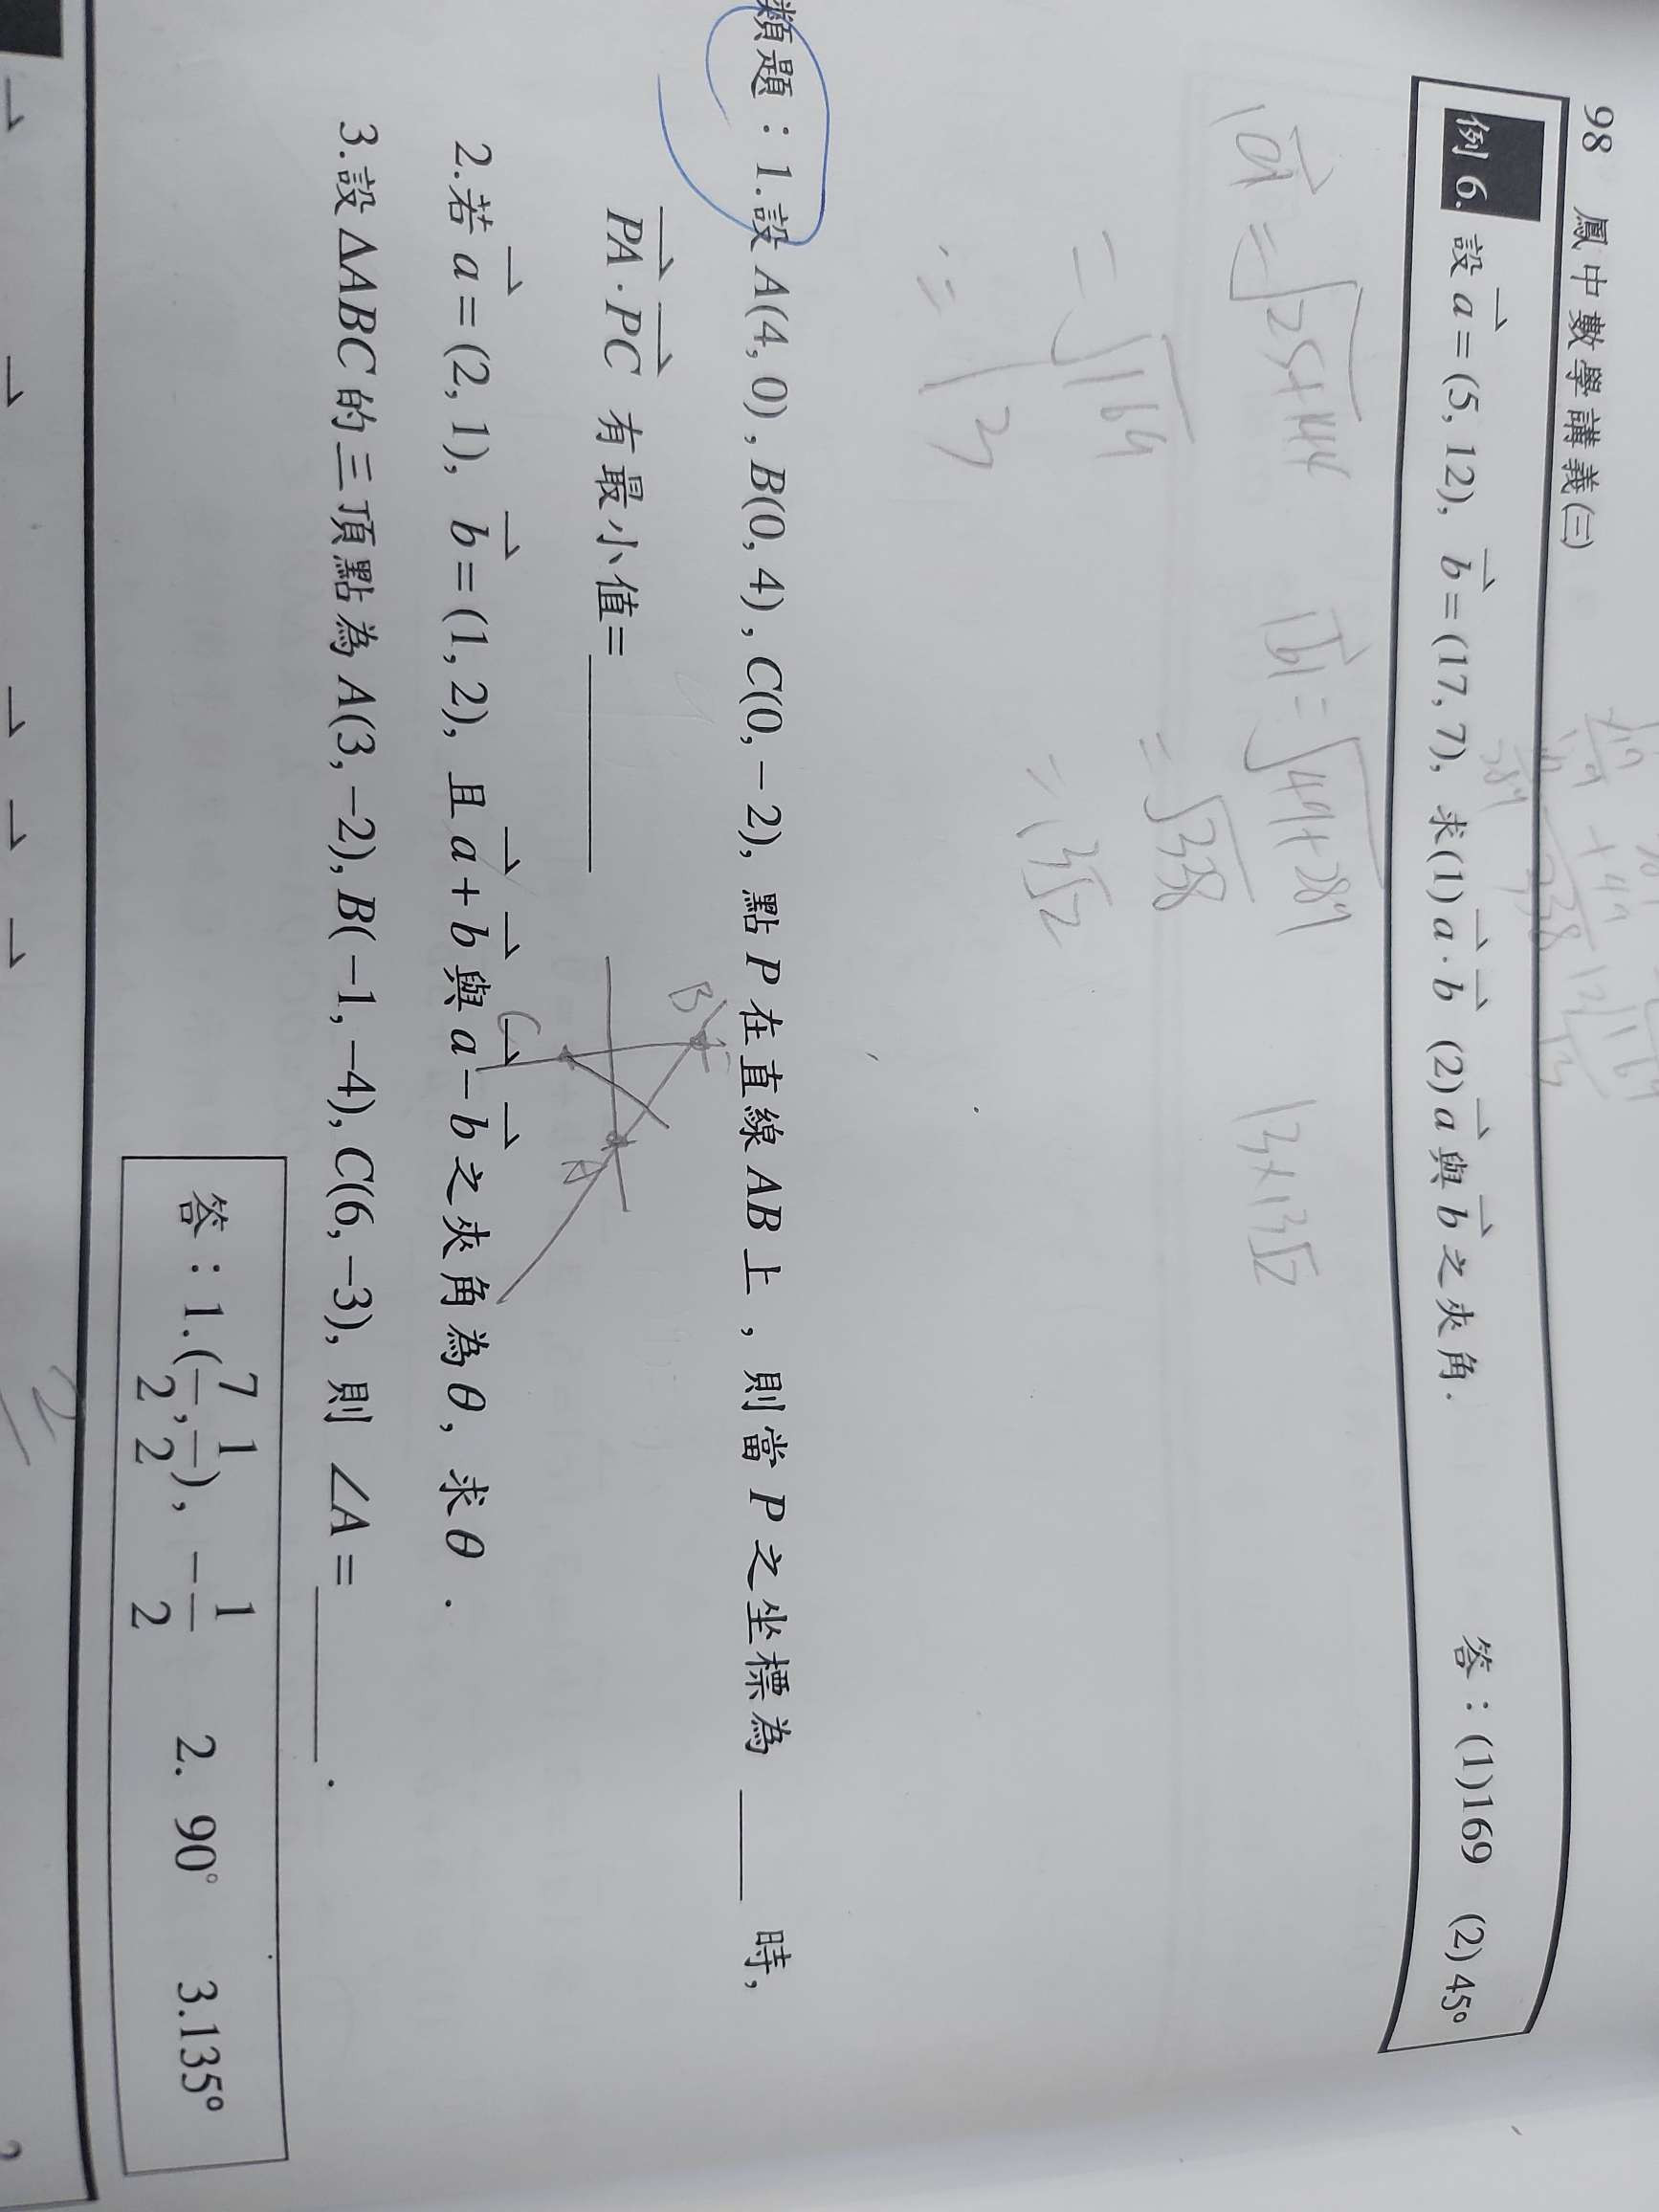 98 鳳中數學講義(三)
例 6. 設 a⃗ = (5, 12), b⃗ = (17, 7), 求(1) a⃗ · b⃗ (2) a⃗ 與 b⃗ 之夾角. 答：(1)169 (2) 45°
|a⃗| = √25+144
= √169
= 13
|b⃗| = √49+289
= √338
= 13√2
13×13√2
類題：1.設 A(4, 0), B(0, 4), C(0, −2), 點 P 在直線 AB 上，則當 P 之坐標為 ____ 時,
PA⃗ · PC⃗ 有最小值= ______
B
C
A
2.若 a⃗ = (2, 1), b⃗ = (1, 2), 且 a⃗ + b⃗ 與 a⃗ − b⃗ 之夾角為 θ, 求 θ .
3.設 ΔABC 的三頂點為 A(3, −2), B(−1, −4), C(6, −3), 則 ∠A = ______ .
答：1.(7/2, 1/2), −1/2 2. 90° 3.135°